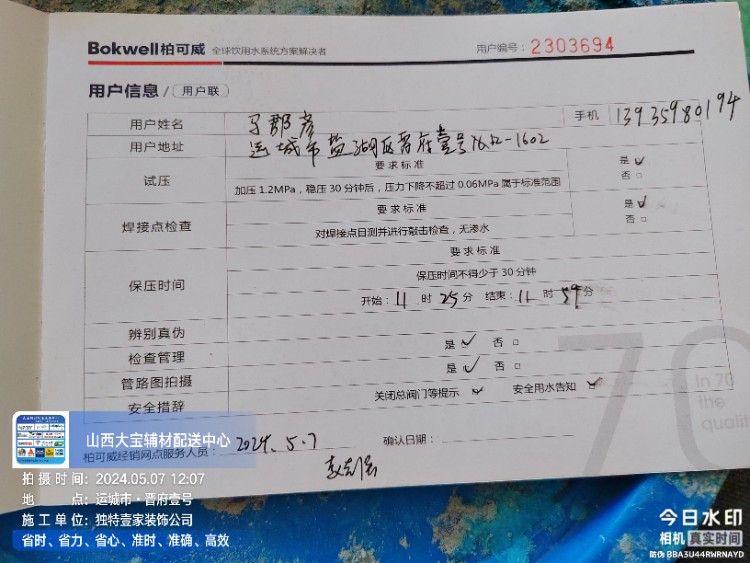 Bokwell柏可威 全球饮用水系统方案解决者 用户编号：2303694
用户信息 / 用户联
用户姓名 手机 13935980194
用户地址 运城市盐湖区晋府壹号
试压 要求标准 是 ✓
加压 1.2MPa，稳压 30 分钟后，压力下降不超过 0.06MPa 属于标准范围 否 □
焊接点检查 要求标准 是 ✓
对焊接点目测并进行敲击检查，无渗水 否 □
保压时间 要求标准
保压时间不得少于 30 分钟
开始：11 时 25 分 结束：11 时 59 分
辨别真伪 是 ✓ 否 □
检查管理 是 ✓ 否 □
管路图拍摄 关闭总阀门等提示 ✓ 安全用水告知 ✓
安全措辞
70
In 70
the
qualit
柏可威经销网点服务人员： 2024.5.7 确认日期：
山西大宝辅材配送中心
拍 摄 时 间：2024.05.07 12:07
地 点：运城市·晋府壹号
施 工 单 位：独特壹家装饰公司
省时、省力、省心、准时、准确、高效
今日水印
相机 真实时间
防伪 BBA3U44RWRNAYD